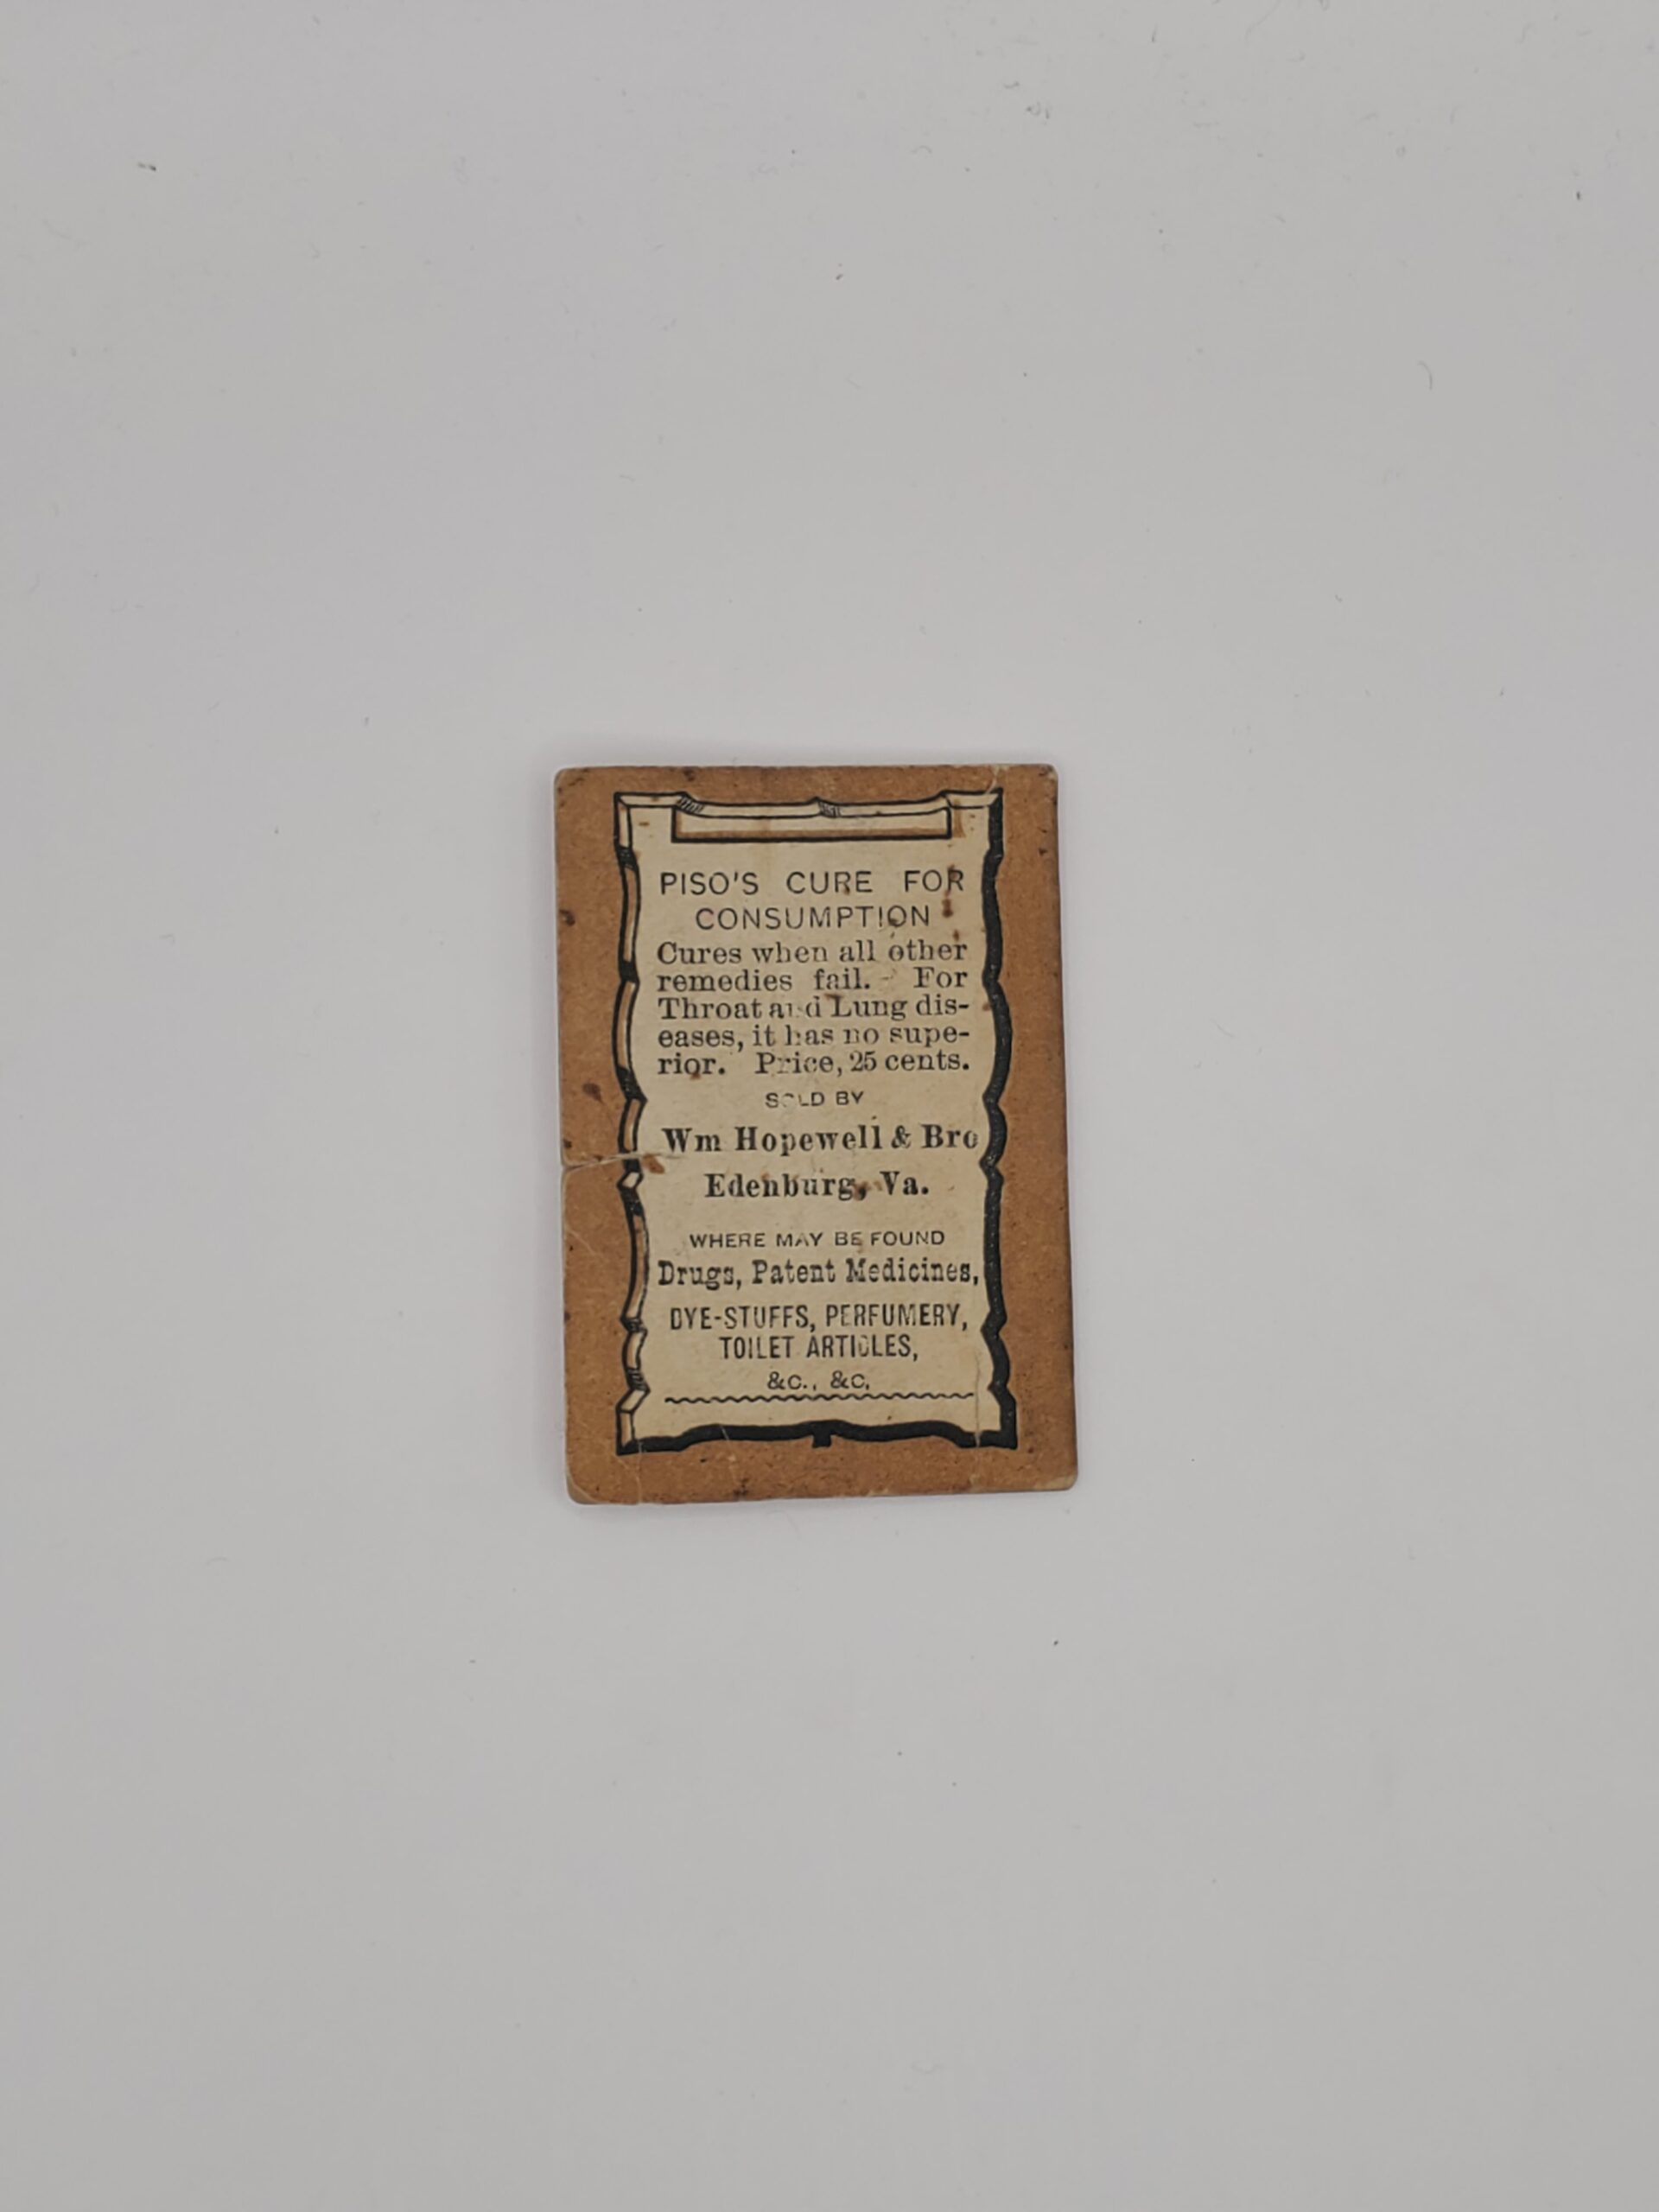 PISO'S CURE FOR
CONSUMPTION
Cures when all other
remedies fail. For
Throat and Lung dis-
eases, it has no supe-
rior. Price, 25 cents.
SOLD BY
Wm Hopewell & Bro
Edenburg, Va.
WHERE MAY BE FOUND
Drugs, Patent Medicines,
DYE-STUFFS, PERFUMERY,
TOILET ARTICLES,
&c., &c,